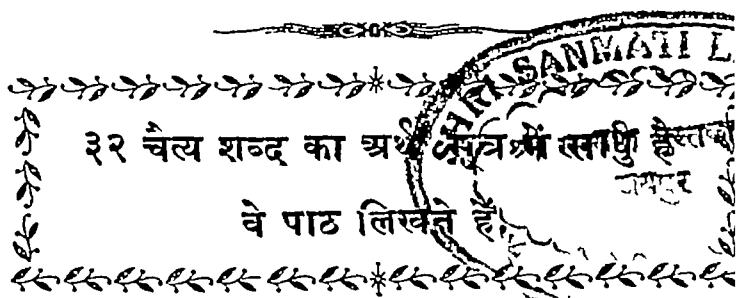 SHRI SANMATI L
३२ चैत्य शब्द का अर्थ सूत्र में साधु है
जयपुर
वे पाठ लिखते हैं